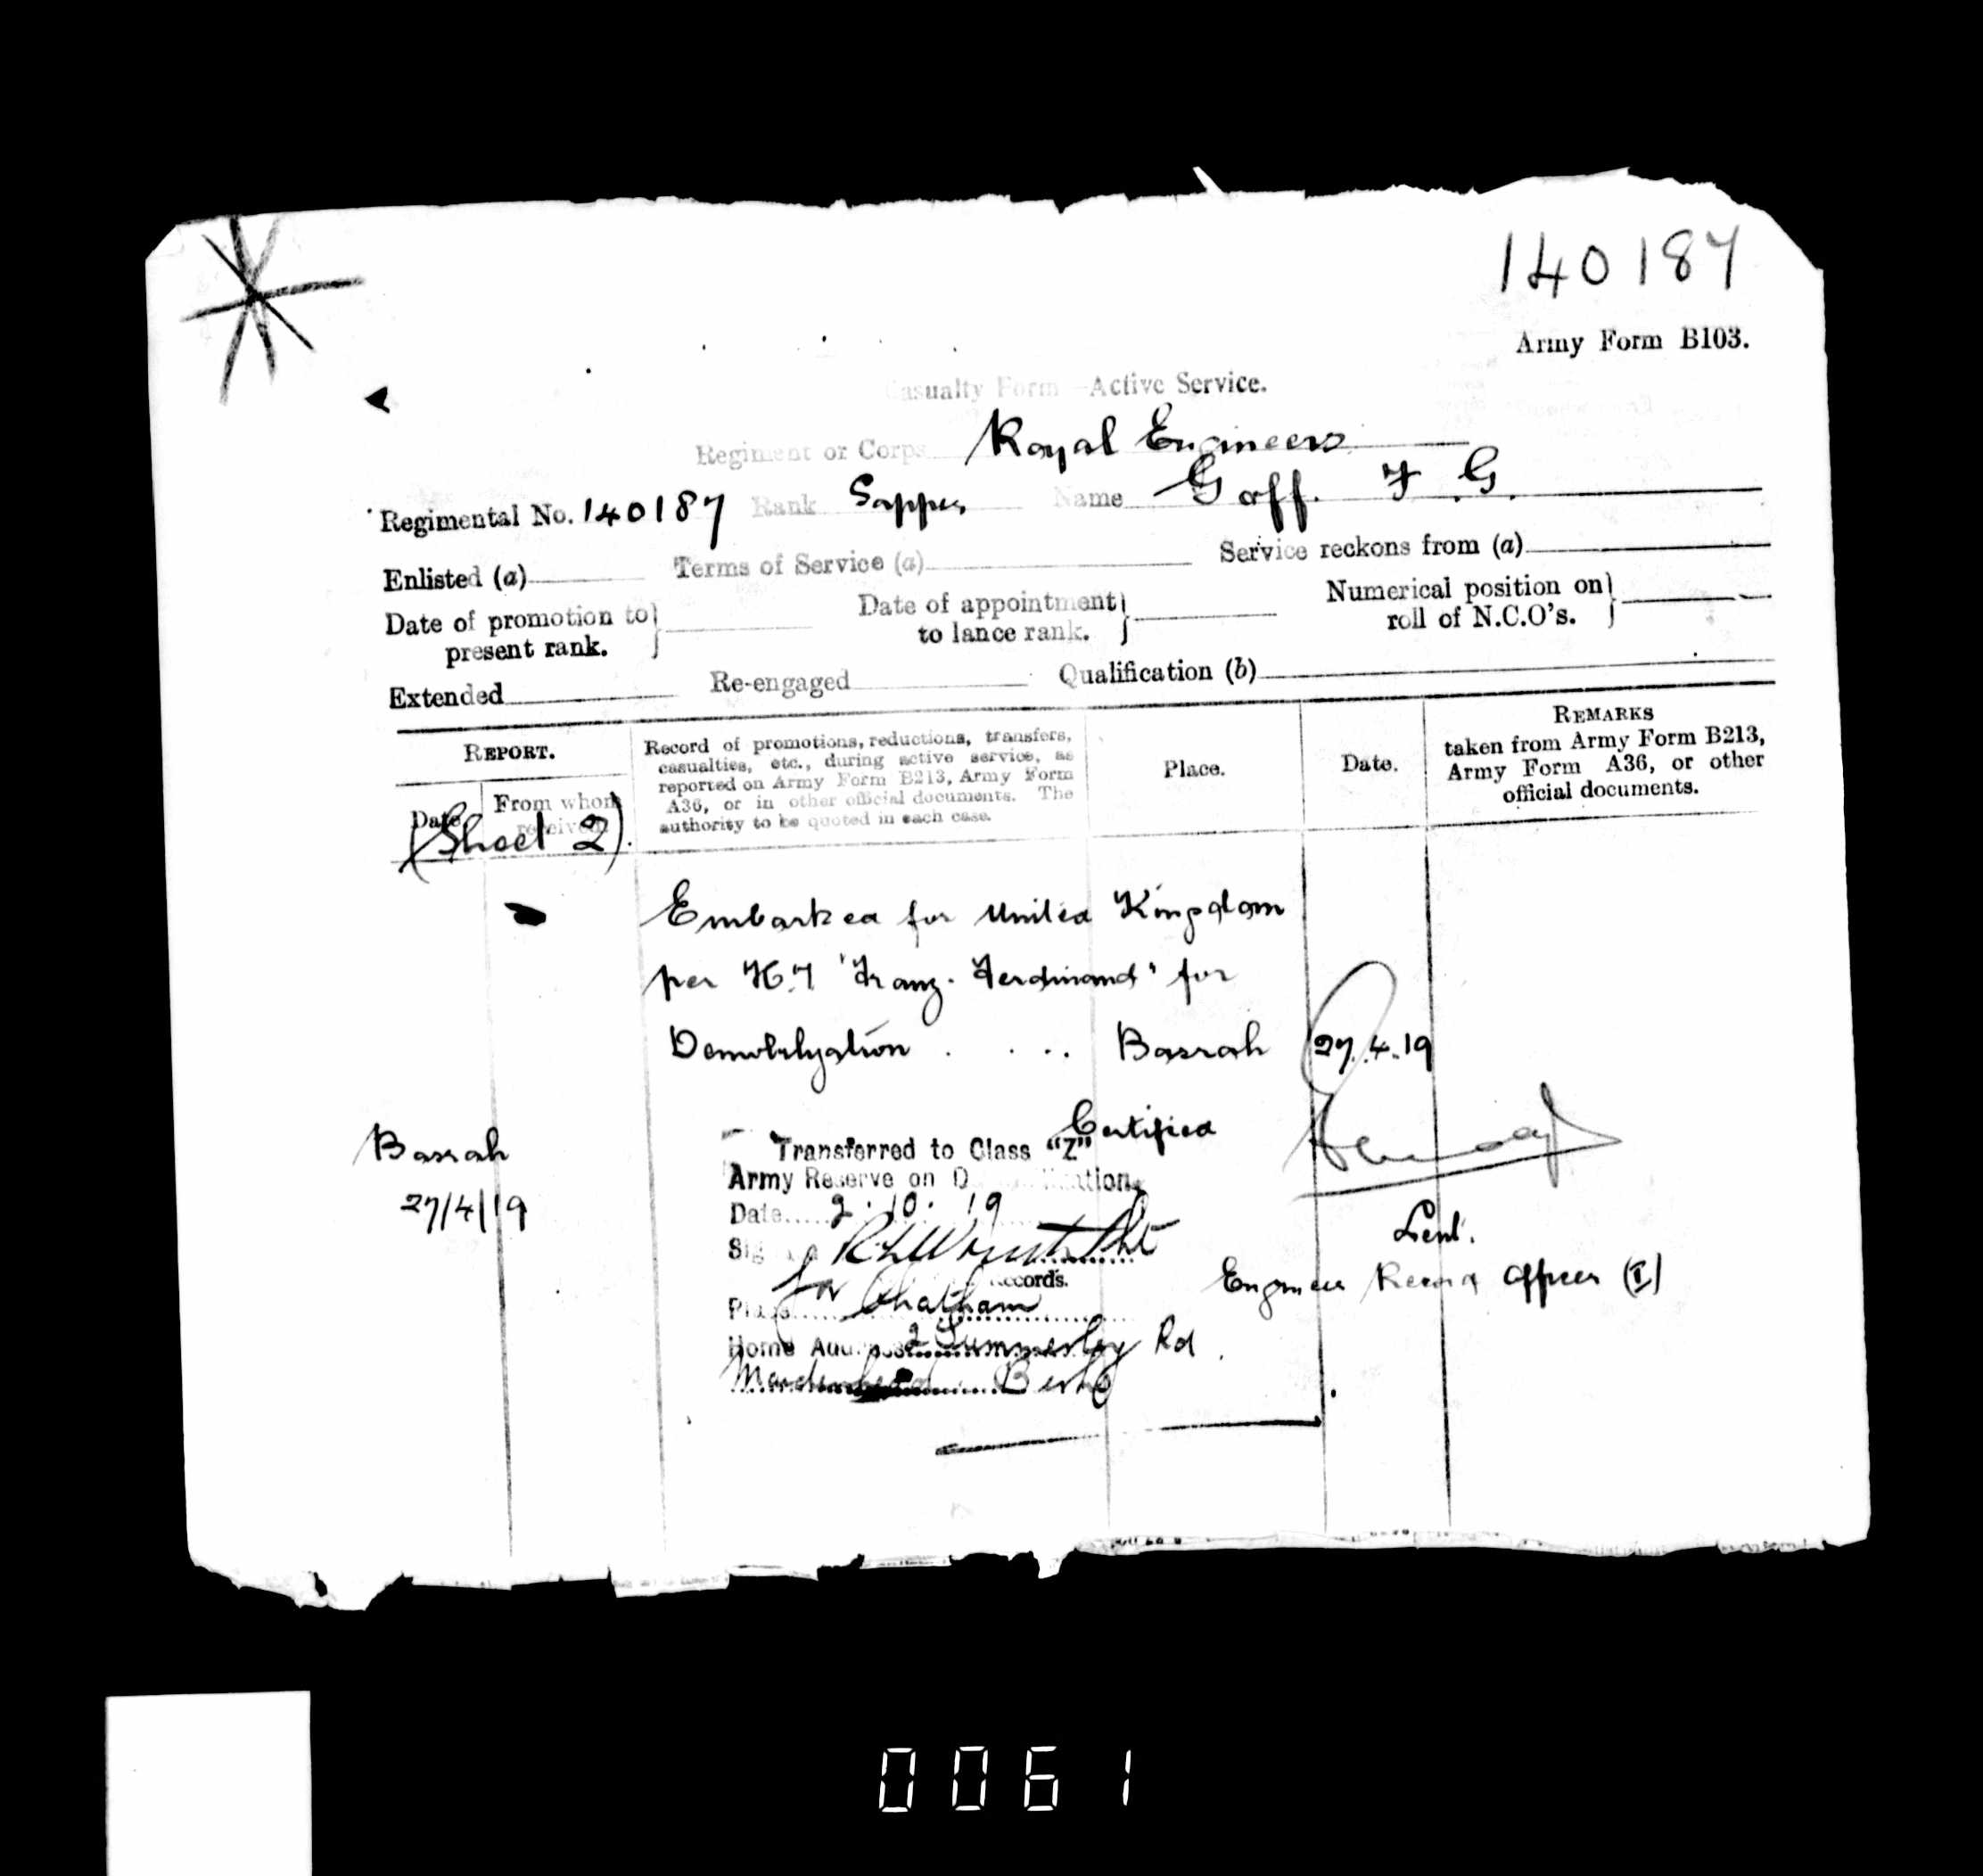 140187
Army Form B103.
Casualty Form—Active Service.
Regiment or Corps Royal Engineers
Regimental No. 140187 Rank Sapper Name Goff. F. G.
Enlisted (a) Terms of Service (a) Service reckons from (a)
Date of promotion to present rank. } Date of appointment to lance rank. } Numerical position on roll of N.C.O's. }
Extended Re-engaged Qualification (b)
REPORT.
Date From whom received
(Sheet 2).
Record of promotions, reductions, transfers,
casualties, etc., during active service, as
reported on Army Form B213, Army Form
A36, or in other official documents. The
authority to be quoted in each case.
Place.
Date.
REMARKS
taken from Army Form B213,
Army Form A36, or other
official documents.
Embarked for United Kingdom
per H.T 'Franz. Ferdinand' for
Demobilization . . . . Basrah 27.4.19
Certified
Basrah
27/4/19
Lieut.
Engineer Record Officer (I)
Transferred to Class "Z"
Army Reserve on D ation
Date 2.10.19
Sig
for Records.
Place Chatham
Home Address 2 Summerley Rd.
Maidenhead Berks
0061